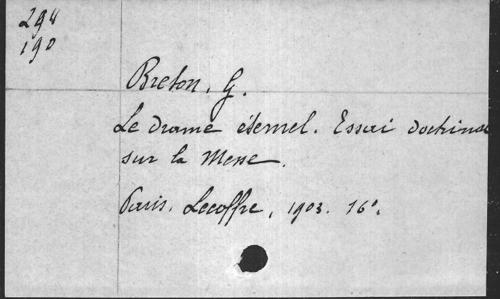 294
190
Breton, G.
Le drame éternel. Essai doctrinal
sur la Messe.
Paris. Lecoffre, 1903. 16°.